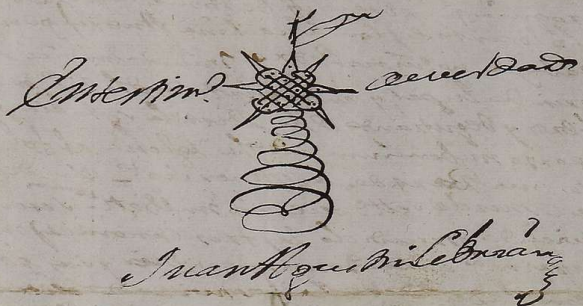 En testim.º de verdad
Juan Agustin Cebrián